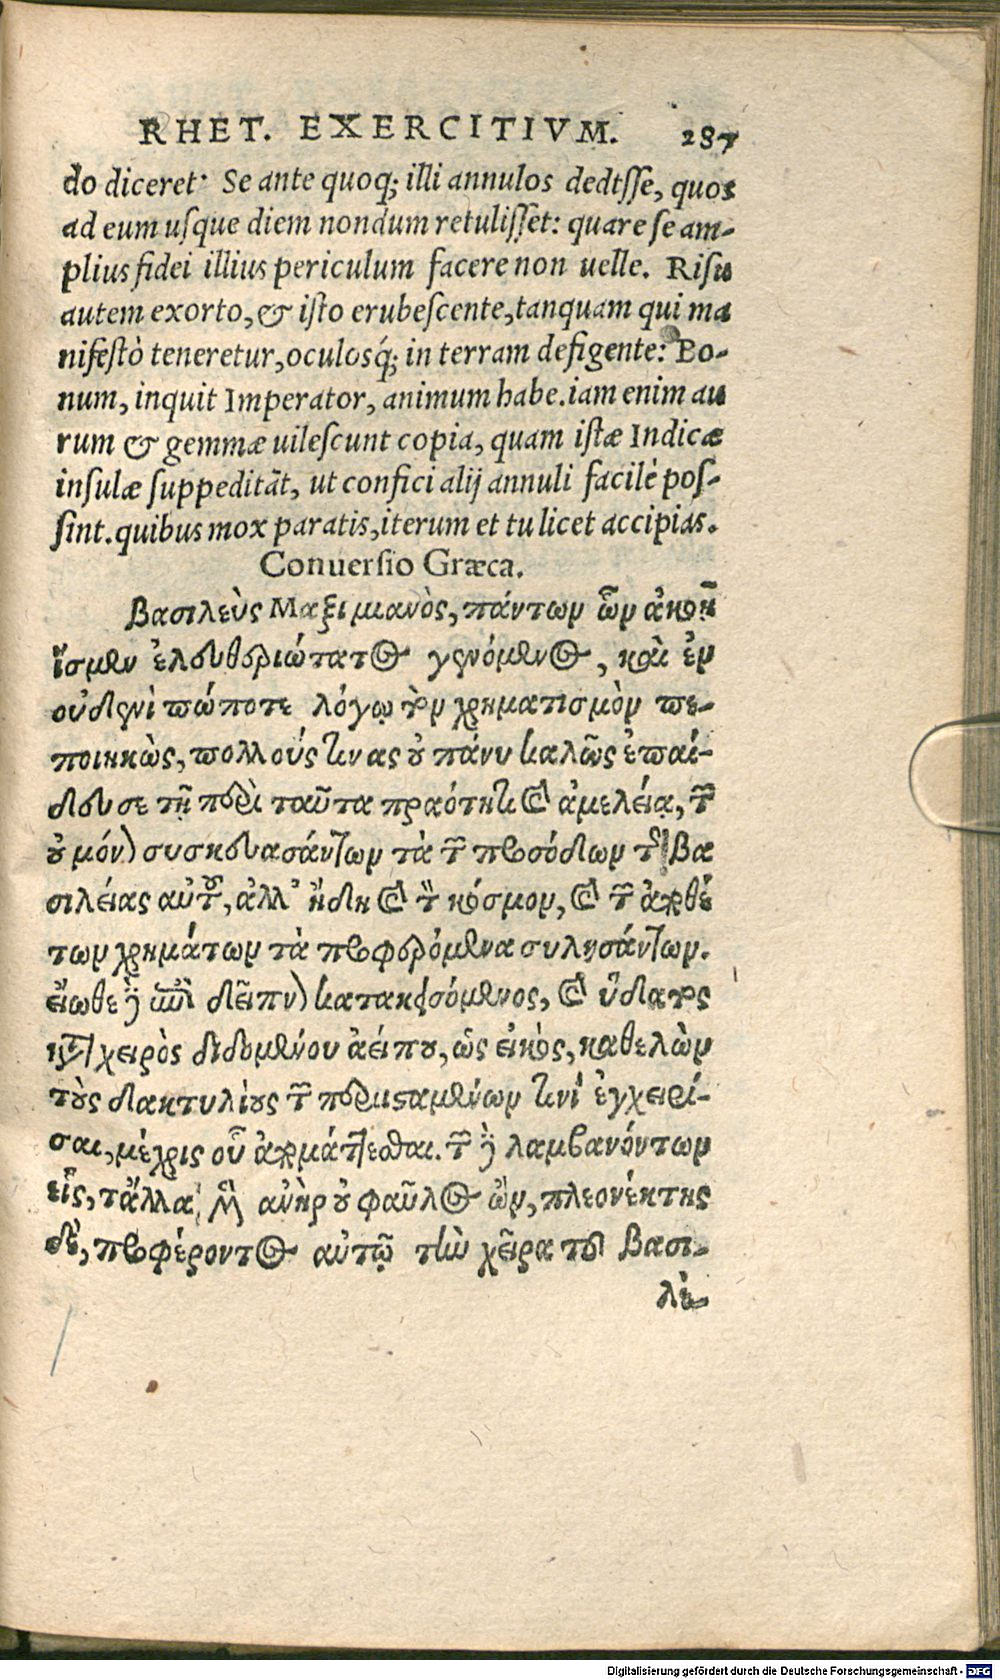 RHET. EXERCITIVM. 287
do diceret· Se ante quoq; illi annulos dedisse, quos
ad eum usque diem nondum retulisset: quare se am-
plius fidei illius periculum facere non uelle. Risu
autem exorto, & isto erubescente, tanquam qui ma
nifestò teneretur, oculosq́; in terram defigente: Bo-
num, inquit Imperator, animum habe. iam enim au
rum & gemmæ uilescunt copia, quam istæ Indicæ
insulæ suppeditāt, ut confici alij annuli facilè pos-
sint. quibus mox paratis, iterum et tu licet accipias.
Conuersio Græca.
Βασιλεὺς Μαξιμιανὸς, πάντων ὧν ἀκοῇ
ἴσμεν ἐλευθεριώτατος γενόμενος, καὶ ἐν
οὐδενὶ πώποτε λόγῳ τὸν χρηματισμὸν πε-
ποιηκὼς, πολλούς τινας οὐ πάνυ καλῶς ἐπαί-
δευσε τῇ περὶ ταῦτα πραότητι καὶ ἀμελείᾳ, τῶν
οὐ μόνον συσκευασάντων τὰ τῶν προσόδων τῆς βα
σιλείας αὐτοῦ, ἀλλ' ἤδη καὶ τὸν κόσμον, καὶ τῶν ἀχθέ
των χρημάτων τὰ προφερόμενα συλησάντων.
εἰώθει γὰρ ἐπὶ δεῖπνον κατακεισόμενος, καὶ ὕδατος
κατὰ χειρὸς διδομένου ἀείπου, ὡς εἰκὸς, καθελὼν
τοὺς δακτυλίους τῶν περιισταμένων τινί ἐγχειρί-
σαι, μέχρις οὗ ἀρμάττεσθαι. τῶν γὰρ λαμβανόντων
εἷς, τἄλλα μὲν ἀνὴρ οὐ φαῦλος ὢν, πλεονέκτης
δὲ, προφέροντος αὐτῷ τὴν χεῖρα τοῦ βασι-
λέ-
Digitalisierung gefördert durch die Deutsche Forschungsgemeinschaft - DFG